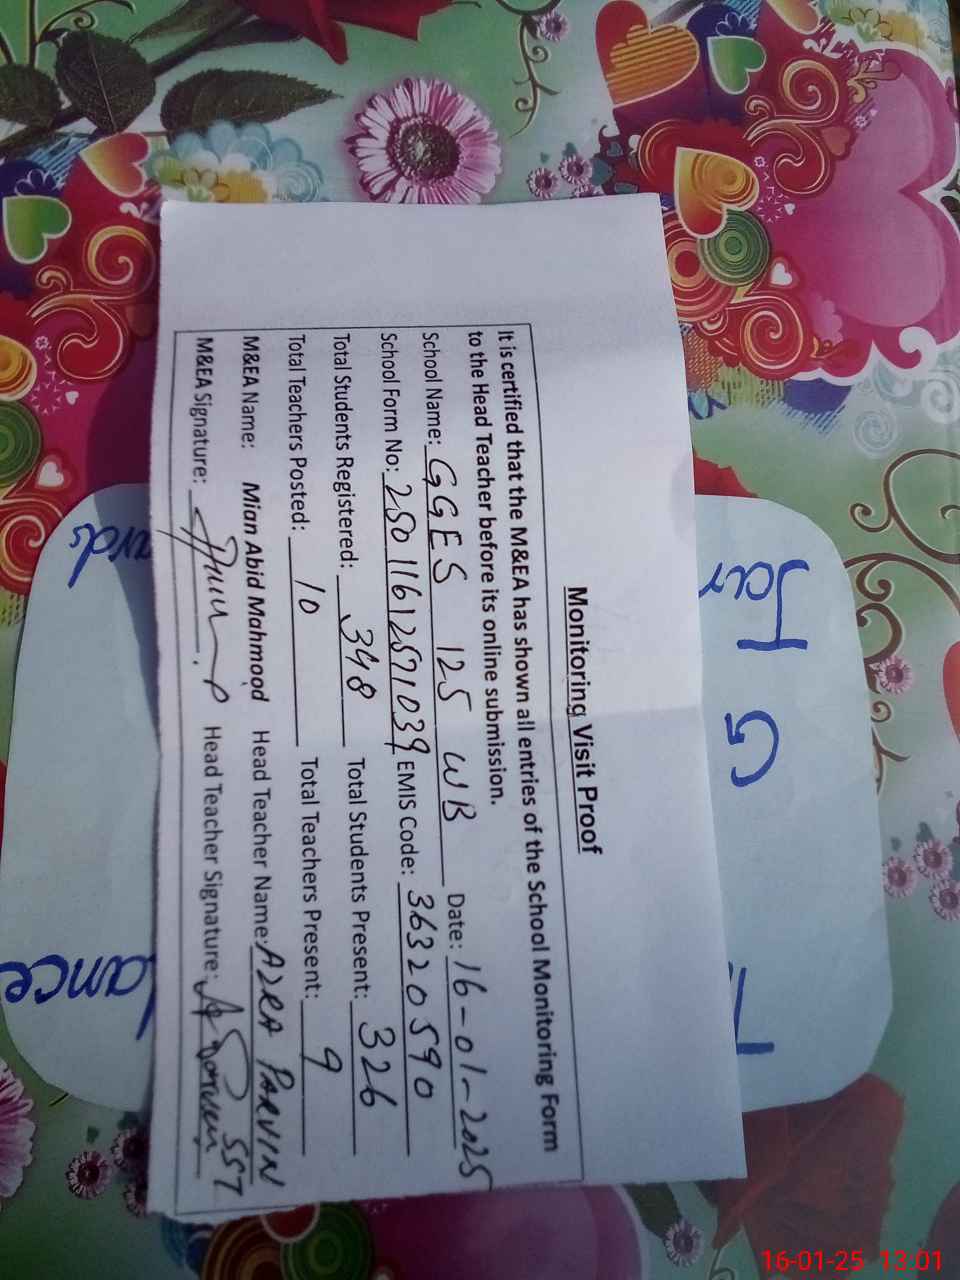 Monitoring Visit Proof
It is certified that the M&EA has shown all entries of the School Monitoring Form
to the Head Teacher before its online submission.
School Name: GGES 125 WB Date: 16-01-2025
School Form No: 25011612571039 EMIS Code: 36320590
Total Students Registered: 348 Total Students Present: 326
Total Teachers Posted: 10 Total Teachers Present: 9
M&EA Name: Mian Abid Mahmood Head Teacher Name: AZRA PARVIN
M&EA Signature: Head Teacher Signature: SST
16-01-25 13:01